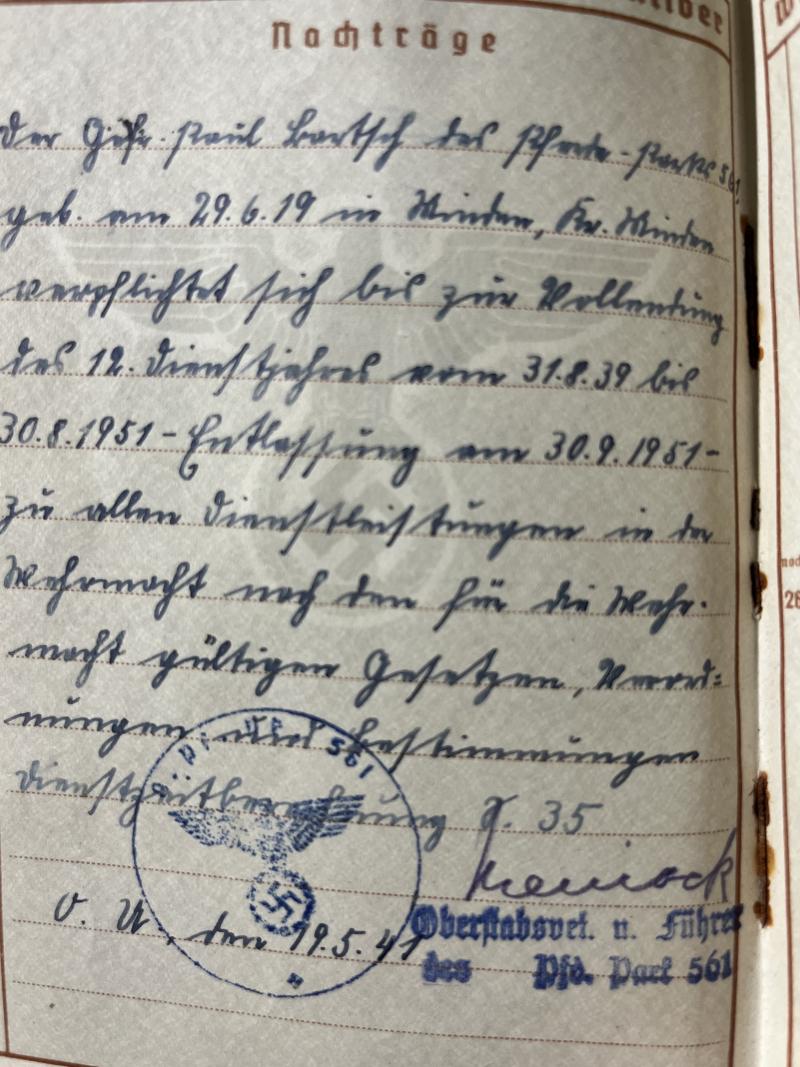 Nachträge
Der Gefr. Paul Bartsch des Pferde-Parks 561
geb. am 29.6.19 in Minden, Kr. Minden
verpflichtet sich bis zur Vollendung
des 12. Dienstjahres vom 31.8.39 bis
30.8.1951 - Entlassung am 30.9.1951 -
zu allen Dienstleistungen in der
Wehrmacht nach den für die Wehr-
macht gültigen Gesetzen, Verord=
nungen und Bestimmungen
Dienstzeitberechnung S. 35
561
O. U., den 19.5.41
Oberstabsvet. u. Führer
des Pfd. Park 561